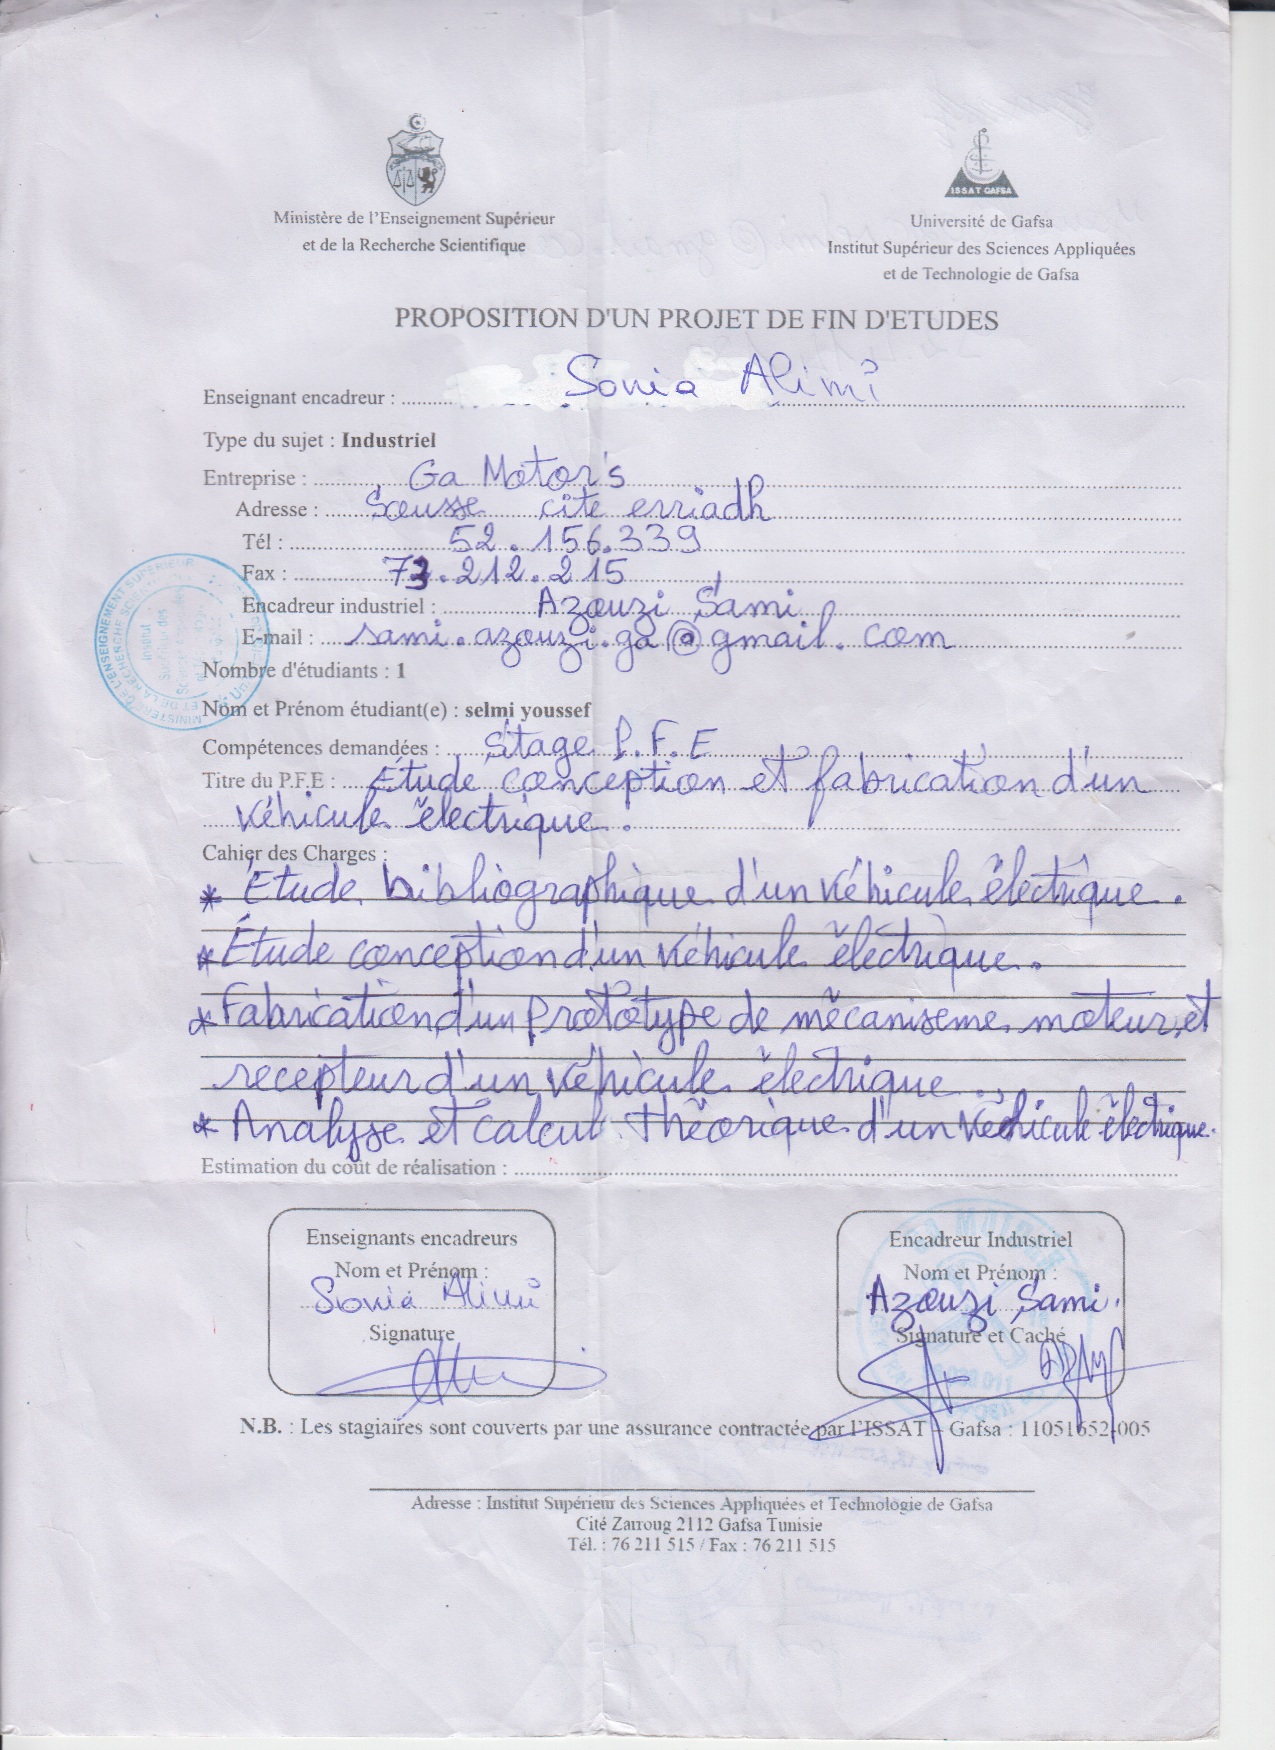 ISSAT GAFSA
Ministère de l'Enseignement Supérieur
et de la Recherche Scientifique
Université de Gafsa
Institut Supérieur des Sciences Appliquées
et de Technologie de Gafsa
PROPOSITION D'UN PROJET DE FIN D'ETUDES
Enseignant encadreur : Sonia Alimi
Type du sujet : Industriel
Entreprise : Ga Motor's
Adresse : Sousse cite erriadh
Tél : 52.156.339
Fax : 73.212.215
Encadreur industriel : Azouzi Sami
E-mail : sami.azouzi.ga@gmail.com
Nombre d'étudiants : 1
Nom et Prénom étudiant(e) : selmi youssef
Compétences demandées : Stage P.F.E
Titre du P.F.E : Étude conception et fabrication d'un
véhicule électrique.
Cahier des Charges :
* Étude bibliographique d'un véhicule électrique.
* Étude conception d'un véhicule électrique.
* Fabrication d'un prototype de mécaniseme moteur et
recepteur d'un véhicule électrique.
* Analyse et calcul théorique d'un véhicule électrique.
Estimation du coût de réalisation :
Enseignants encadreurs
Nom et Prénom :
Sonia Alimi
Signature
Encadreur Industriel
Nom et Prénom :
Azouzi Sami.
Signature et Caché
N.B. : Les stagiaires sont couverts par une assurance contractée par l'ISSAT – Gafsa : 11051652-005
Adresse : Institut Supérieur des Sciences Appliquées et Technologie de Gafsa
Cité Zarroug 2112 Gafsa Tunisie
Tél. : 76 211 515 / Fax : 76 211 515